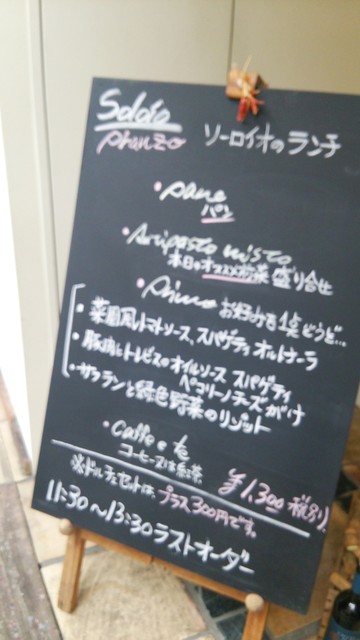 Soloio
pranzo ソーロイオのランチ
・pane
パン
・Antipasto misto
本日のオススメ前菜盛り合せ
・Primo お好みを1皿どうぞ…
・菜園風トマトソース、スパゲティ オルトナーラ
・豚肉とトレビスのオイルソース スパゲティ
ペコリーノチーズがけ
・サフランと緑色野菜のリゾット
・Caffe e te
コーヒー又は紅茶。
¥1,300(税別).
※ドルチェセットは、プラス300円です。
11:30〜13:30ラストオーダー